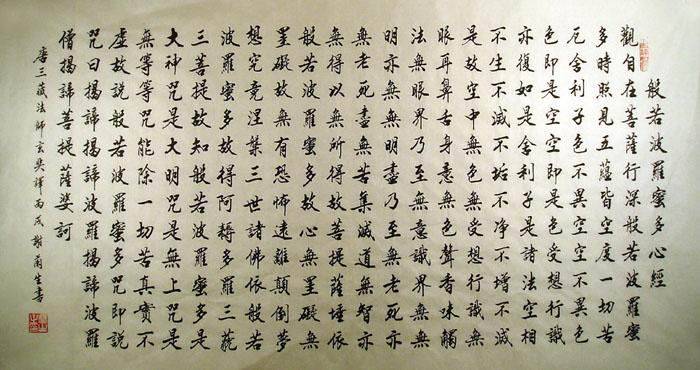 般若波羅蜜多心經
觀自在菩薩行深般若波羅蜜
多時照見五蘊皆空度一切苦
厄舍利子色不異空空不異色
色即是空空即是色受想行識
亦復如是舍利子是諸法空相
不生不滅不垢不淨不增不減
是故空中無色無受想行識無
眼耳鼻舌身意無色聲香味觸
法無眼界乃至無意識界無無
明亦無無明盡乃至無老死亦
無老死盡無苦集滅道無智亦
無得以無所得故菩提薩埵依
般若波羅蜜多故心無罣礙無
罣礙故無有恐怖遠離顛倒夢
想究竟涅槃三世諸佛依般若
波羅蜜多故得阿耨多羅三藐
三菩提故知般若波羅蜜多是
大神咒是大明咒是無上咒是
無等等咒能除一切苦真實不
虛故說般若波羅蜜多咒即說
咒曰揭諦揭諦波羅揭諦波羅
僧揭諦菩提薩婆訶
唐三藏法師玄奘譯丙戌生書